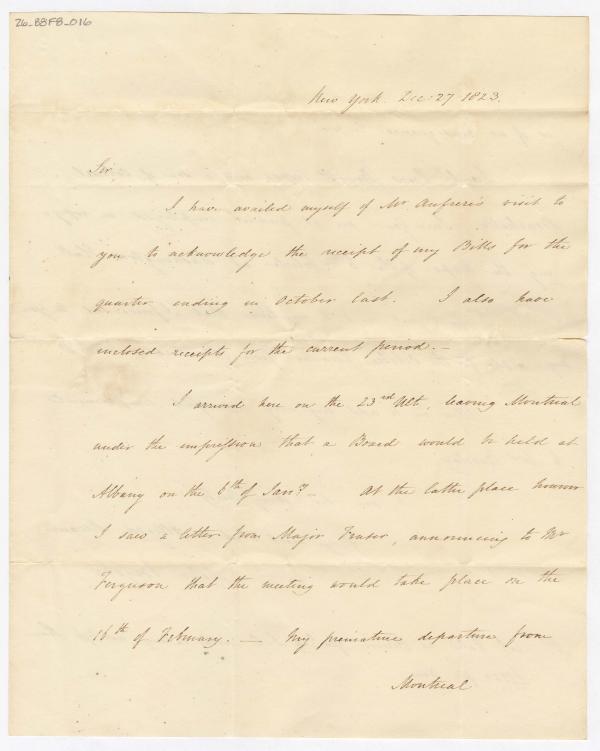 26_B8F8_016
New York. Dec: 27 1823.
Sir,
I have availed myself of Mr Aufrere's visit to
you to acknowledge the receipt of my Bills for the
quarter ending in October last. I also have
inclosed receipts for the current period.—
I arrived here on the 23rd Ulto, leaving Montreal
under the impression that a Board would be held at
Albany on the 6th of Jany.— At the latter place however
I saw a letter from Major Fraser, announcing to Mr
Ferguson that the meeting would take place on the
16th of February.— My premature departure from
Montreal